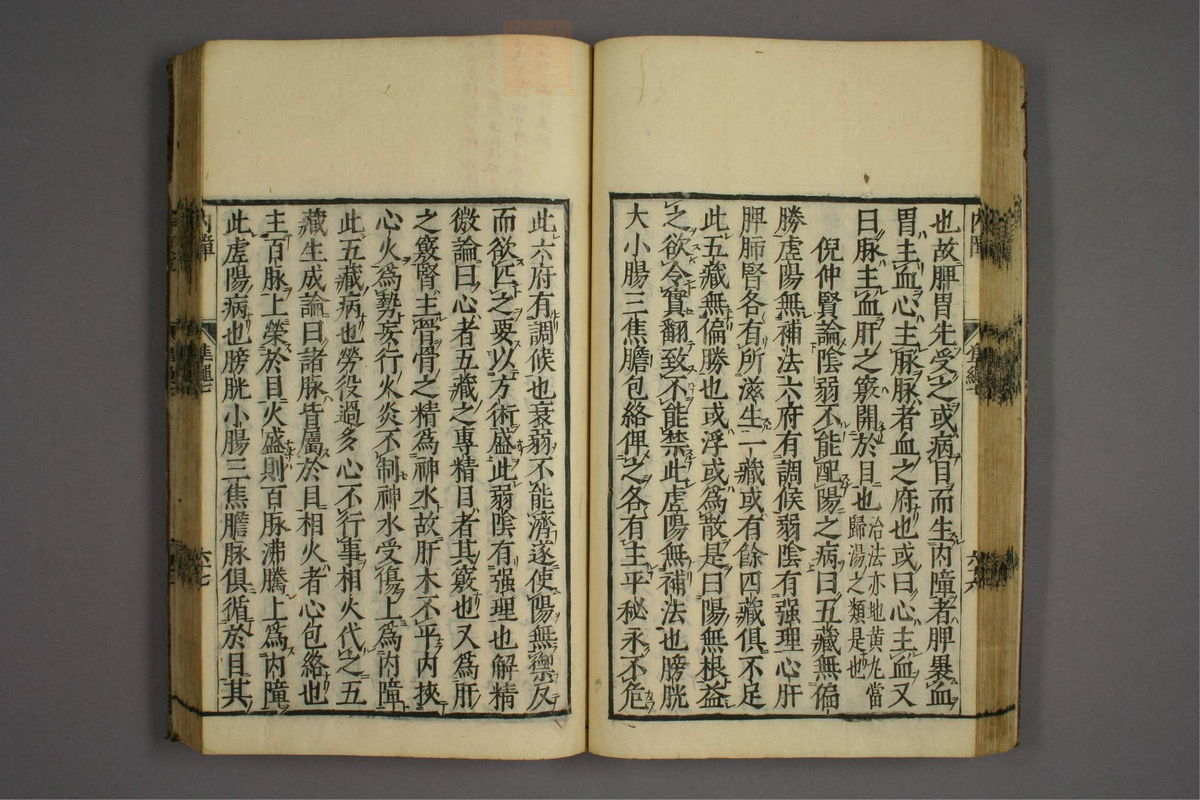 也故脾胃先受之或病目而生內障者脾裹血
胃主血心主脉脉者血之府也或曰心主血又
曰脉主血肝之竅開於目也治法亦地黄丸當
歸湯之類是也
倪仲賢論陰弱不能配陽之病曰五藏無偏
勝虛陽無補法六府有調候弱陰有强理心肝
脾肺腎各有所滋生一藏或有餘四藏俱不足
此五藏無偏勝也或浮或為散是曰陽無根益
之欲令實翻致不能禁此虛陽無補法也膀胱
大小腸三焦膽包絡俾之各有主平秘永不危
此六府有調候也衰弱不能濟遂使陽無禦反
而欲匹之要以方術盛此弱陰有强理也解精
微論曰心者五藏之專精目者其竅也又為肝
之竅腎主骨骨之精為神水故肝木不平內挾
心火為勢妄行火炎不制神水受傷上為內障
此五藏病也勞役過多心不行事相火代之五
藏生成論曰諸脉皆屬於目相火者心包絡也
主百脉上榮於目火盛則百脉沸騰上為內障
此虛陽病也膀胱小腸三焦膽脉俱循於目其
內障
六七